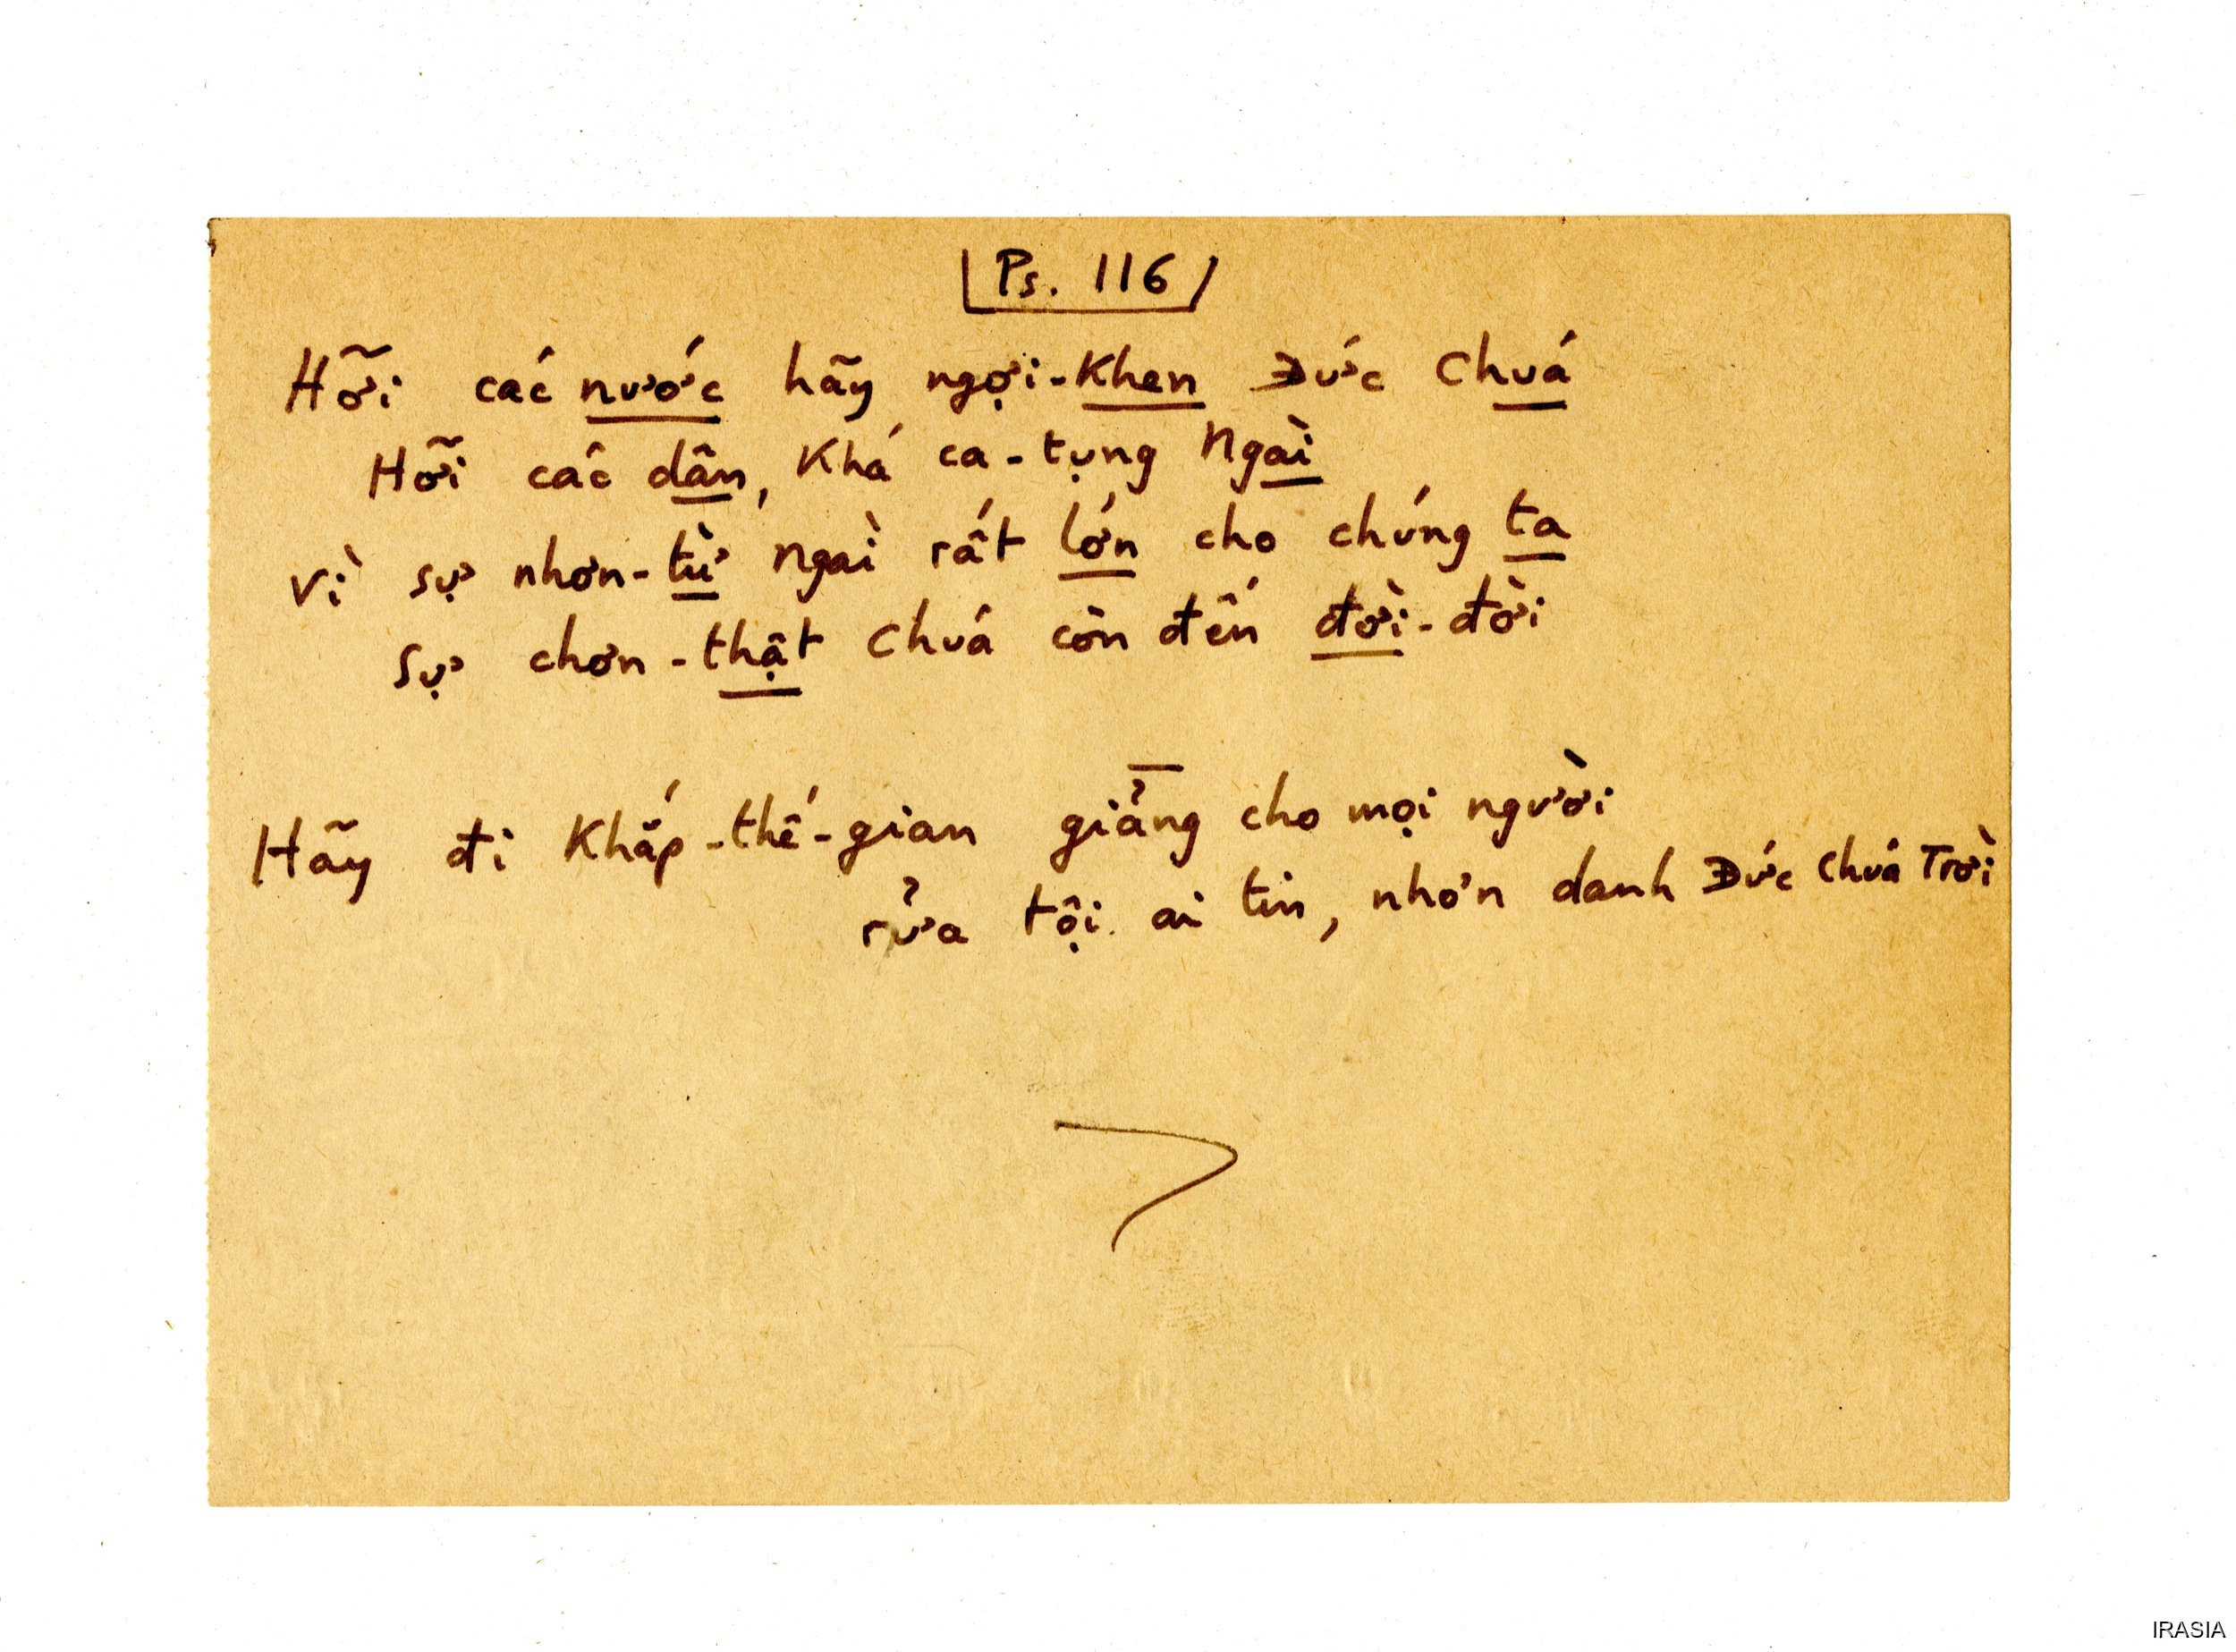 Ps. 116
Hỡi các nước hãy ngợi-khen Đức Chuá
Hỡi các dân, Khá ca-tụng Ngài
Vì sự nhơn-từ Ngài rất lớn cho chúng ta
Sự chơn-thật Chuá còn đến đời-đời
Hãy đi Khắp-thế-gian giảng cho mọi người
rửa tội ai tin, nhơn danh Đức Chuá Trời
IRASIA